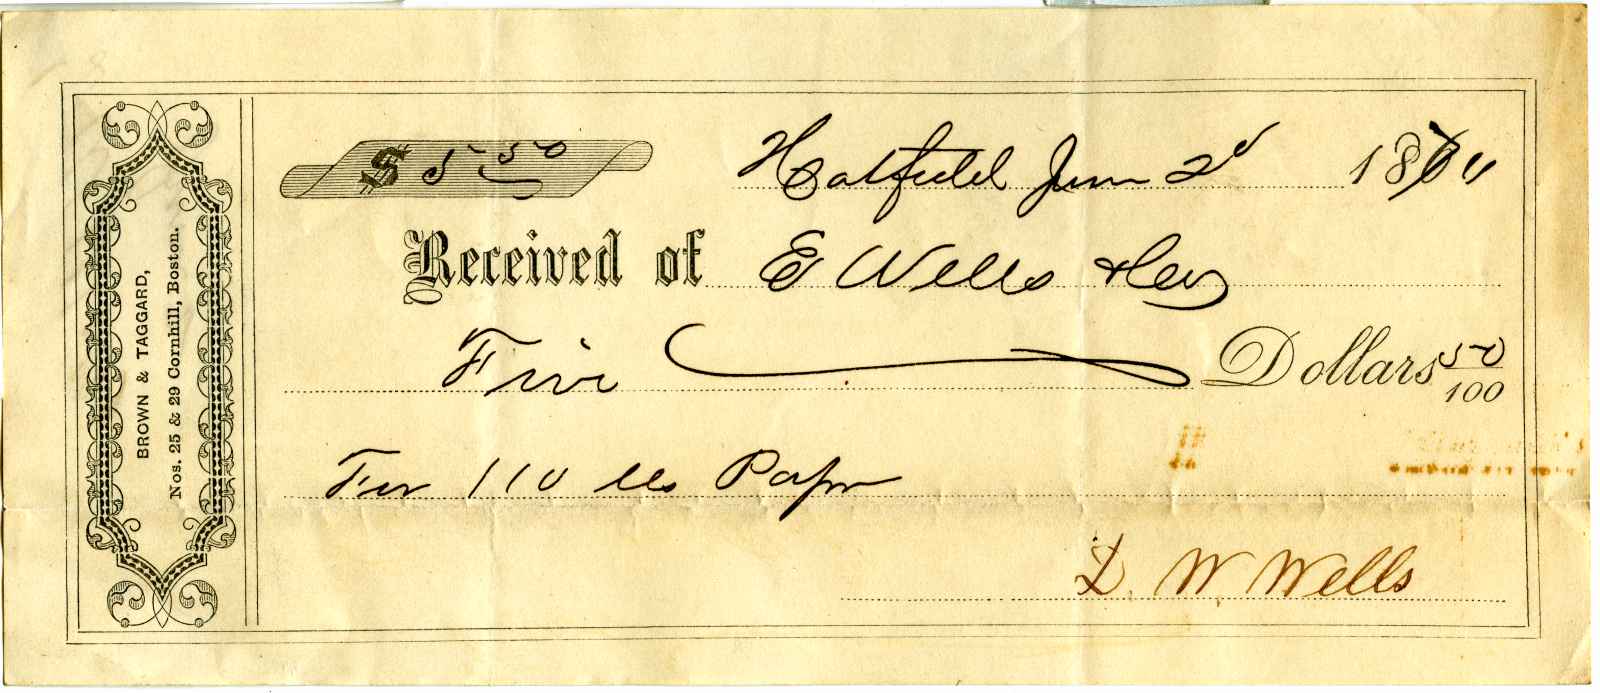 BROWN & TAGGARD,
Nos. 25 & 29 Cornhill, Boston.
$ 5 50
Hatfield June 2d 18
Received of E Wells & Co
Five Dollars 50/100
For 110 lbs Paper
D. W. Wells